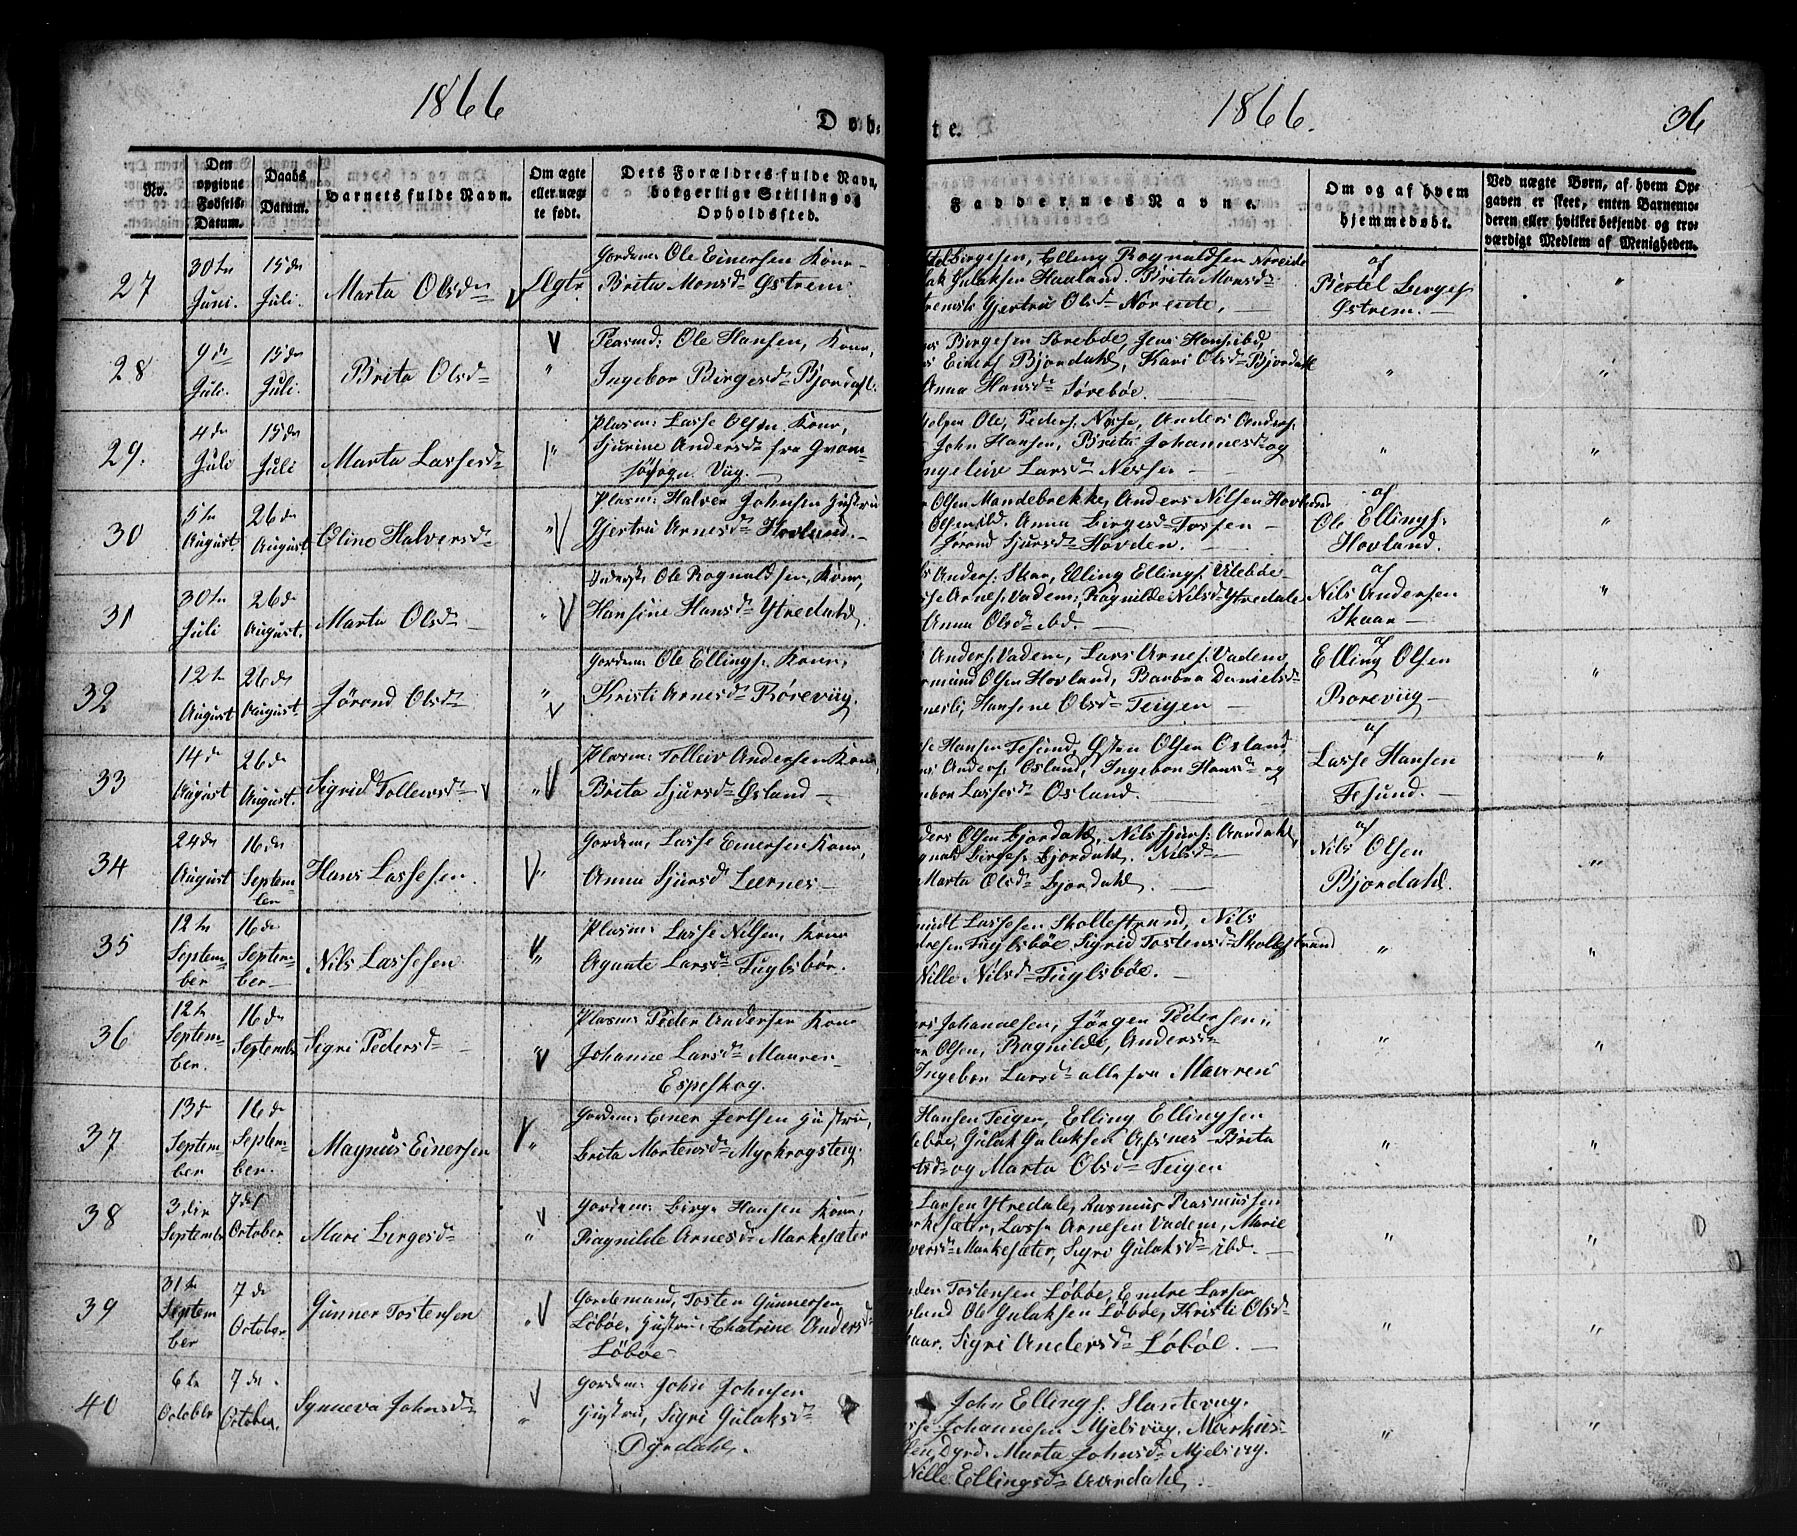 1866
Døb-
te.
1866.
36
No.
Den opgivne Fødsels-Datum.
Daabs Datum.
Barnets fulde Navn.
Om ægte eller uægte født.
Dets Forældres fulde Navn, borgerlige Stilling og Opholdssted.
Faddernes Navne.
Om og af hvem hjemmedøbt.
Ved uægte Børn, af hvem Opgaven er skeet, enten Barnemoderen eller hvilket bekjendt og troværdigt Medlem af Menigheden.
27
30te Juni.
15de Juli.
Marta Olsdr
Ægte
Gordem: Ole Einersen Kone
Brita Monsdr Østrem.
Birgesen, Elling Rognaldsen Noreide
Gulaksen Haaland. Brita Monsdr
Gjertru Olsdr Noreide,
af
Bertel Berges
Østrem.
28
9de Juli.
15de Juli.
Brita Olsdr
Plasmd: Ole Hansen, Kone,
Ingebor Birgesdr Bjordahl.
Birgesen Sørebøe, Jens Hans ibd,
Einers Bjordahl, Kari Olsdr Bjordahl
Anna Hansdr Sørebøe.
29.
4de Juli
15de Juli
Marta Lassesdr
Plasm: Lasse Olsen. Kone,
Sjurine Andersdr fra Qvam-
søsogn Viig.
Ole, Peders. Nesse, Anders Anders.
John Hansen, Brita Johannesdr og
Ingeleiv Larsdr Nesse
30
5te August
26de August
Oline Halversdr
Plasm: Halver Johnsen Hustru
Gjertru Arnesdr Hovland.
Olsen Mandebrekke, Anders Nilsen Hovland
Olsen ibd. Anna Bergesdr Tossen
Jørand Sjursdr Hovden.
af
Ole Ellings.
Hovland.
31
30te Juli
26de August.
Marta Olsdr
Inderst Ole Rognaldsen, Kone,
Hansine Hansdr Ytredahl.
Anders. Skar, Elling Ellings. Vilebøe
Arnes. Vadem, Ragnilde Nilsdr Ytredale
Anna Olsdr ibd.
af
Nils Andersen
Skaar
32
12te August
26de August.
Jørand Olsdr
Gordem: Ole Ellings. Kone,
Kristi Arnesdr Rørevig.
Anders. Vadem, Lars Arnes. Vadem
Olsen Hovland, Barbra Danielsdr
Hansene Olsdr Teigen
af
Elling Olsen
Rorevig
33
14de August
26de August.
Sigrid Tollevsdr
Plasm: Tolleiv Andersen Kone,
Brita Sjursdr Øsland
Hansen Fesund, Østen Olsen Osland
Anders. Osland, Ingebor Hansdr og
Lassesdr Osland.
af
Lasse Hansen
Fesund.
34
24de August
16de September
Hans Lassesen
Gordem, Lasse Einersen Kone,
Anna Sjursdr Leernes
Olsen Bjordahl, Nils Sjurs. Aardahl
Birges. Bjordahl. Nilsdr
Marta Olsdr Bjordahl.
af
Nils Olsen
Bjordahl.
35
12te September
16de September
Nils Lassesen
Plasm: Lasse Nilsen, Kone
Agaate Larsdr Fuglsbøe.
Lassesen Skollestrand, Nils
Fuglsbøe, Sigrid Tostensdr Skollestrand
Nille Nilsdr Fuglsbøe.
36
12te September.
16de September
Sigri Pedersdr
Plasm: Peder Andersen Kone
Johanne Larsdr Mauren-
Espeskog.
Johannesen, Jørgen Pedersen,
Olsen, Ragnilde, Andersdr
Ingebor Larsdr alle fra Mauren
37
13de September
16de September.
Magnus Einersen
Gordem: Einer Jertsen Hustru,
Brita Mortensdr Myrkrogsteig.
Hansen Teigen, Elling Ellingsen
Gulak Gulaksen Aasnes Brita
og Marta Olsdr Teigen
38
3die September
7de October.
Mari Bergesdr
Gordem: Birge Hansen Kone,
Ragnilde Arnesdr Markesæter
Larsen Ytredale, Rasmus Rasmussen
Lasse Arnesen Vadem, Marie
Markesæter, Sigri Gulaksdr ibd.
39
31te September
7de October.
Gunner Tostensen
Gordemand, Tosten Gunnersen
Løbøe, Hustru, Chatrine Andersdr
Løbøe
Tostensen Løbøe, Endre Larsen
Ole Gulaksen Løbøe, Kristi Olsdr
Sigri Andersdr Løbøe.
40
6te October
7de October.
Synneva Johnsdr
Gordem: John Johnsen
Hustru, Sigri Gulaksdr
Dyrdahl.
John Ellings. Slantevig.
Johannesen Mjelsvig, Markus
Dyrd. Marta Johnsdr Mjelsvig.
Nille Ellingsdr Aardahl.